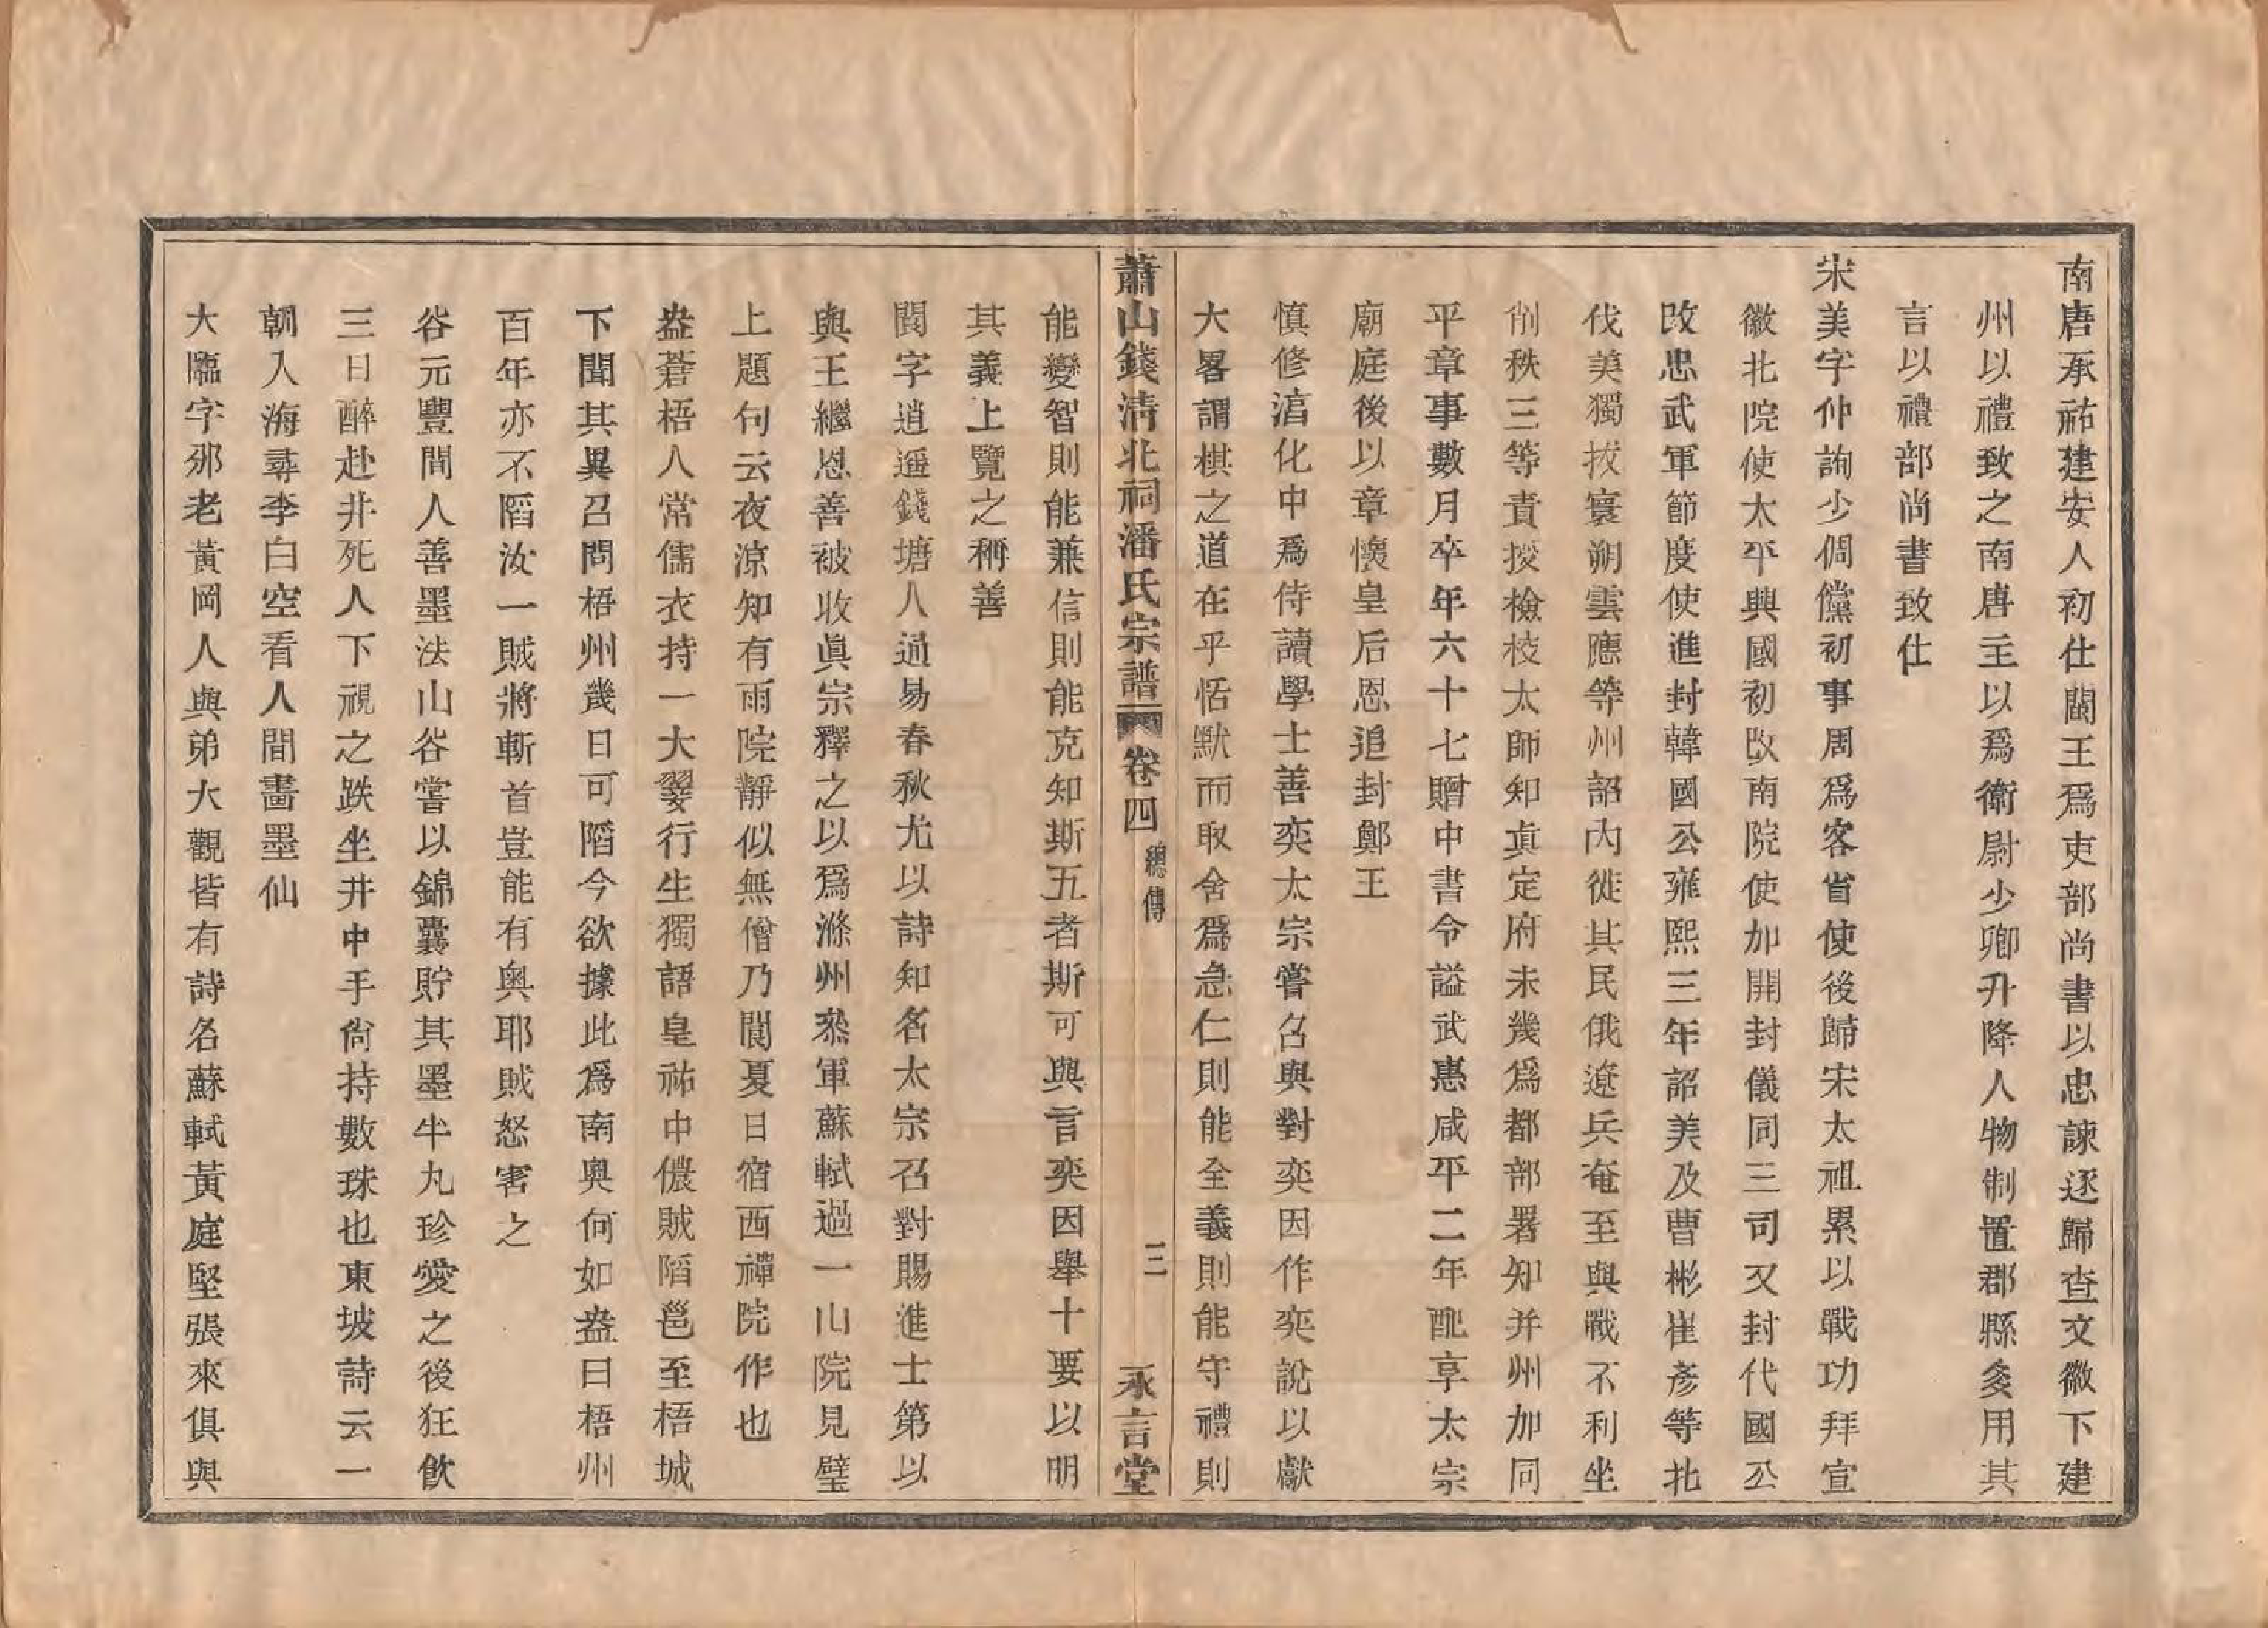 南唐承祐建安人初仕閩王爲吏部尚書以忠諫逐歸查文徽下建
州以禮致之南唐主以爲衛尉少卿升降人物制置郡縣多用其
言以禮部尚書致仕
宋美字仲詢少倜儻初事周爲客省使後歸宋太祖累以戰功拜宣
徽北院使太平興國初改南院使加開封儀同三司又封代國公
改忠武軍節度使進封韓國公雍熙三年詔美及曹彬崔彥等北
伐美獨拔寰朔雲應等州詔內徙其民俄遼兵奄至與戰不利坐
削秩三等責授檢校太師知眞定府未幾爲都部署知并州加同
平章事數月卒年六十七贈中書令謚武惠咸平二年配享太宗
廟庭後以章懷皇后恩追封鄭王
慎修淯化中爲侍讀學士善奕太宗嘗召與對奕因作奕說以獻
大畧謂棋之道在乎恬默而取舍爲急仁則能全義則能守禮則
蕭山錢淸北祠潘氏宗譜 卷四 總傳 三 承言堂
能變智則能兼信則能克知斯五者斯可與言奕因舉十要以明
其義上覽之稱善
閬字逍遥錢塘人通易春秋尤以詩知名太宗召對賜進士第以
與王繼恩善被收眞宗釋之以爲滁州叅軍蘇軾過一山院見璧
上題句云夜涼知有雨院靜似無僧乃閬夏日宿西禪院作也
盎蒼梧人常儒衣持一大翣行生獨語皇祐中儂賊陷邕至梧城
下聞其異召問梧州幾日可陷今欲據此爲南奧何如盎曰梧州
百年亦不陷汝一賊將斬首豈能有奥耶賊怒害之
谷元豐間人善墨法山谷嘗以錦囊貯其墨半丸珍愛之後狂飲
三日醉赴井死人下視之趺坐井中手尙持數珠也東坡詩云一
朝入海尋李白空看人間畵墨仙
大臨字邠老黃岡人與弟大觀皆有詩名蘇軾黃庭堅張來俱與